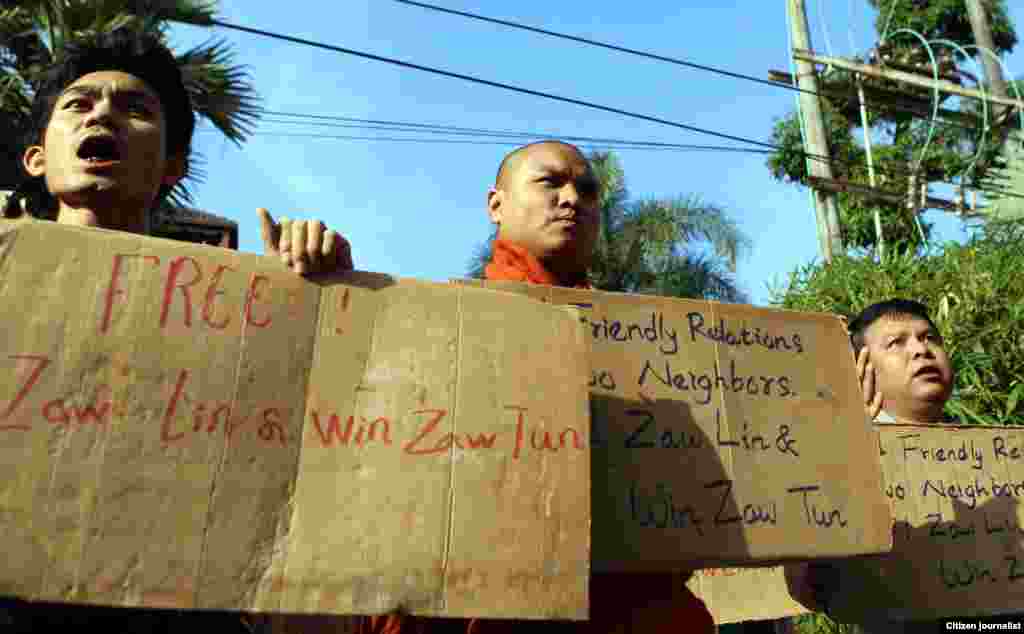 FREE !
Zaw Lin & Win Zaw Tun
Friendly Relations
Neighbors.
Zaw Lin &
Win Zaw Tun
Friendly
Neighbors
Zaw Lin
Win
Citizen journalist